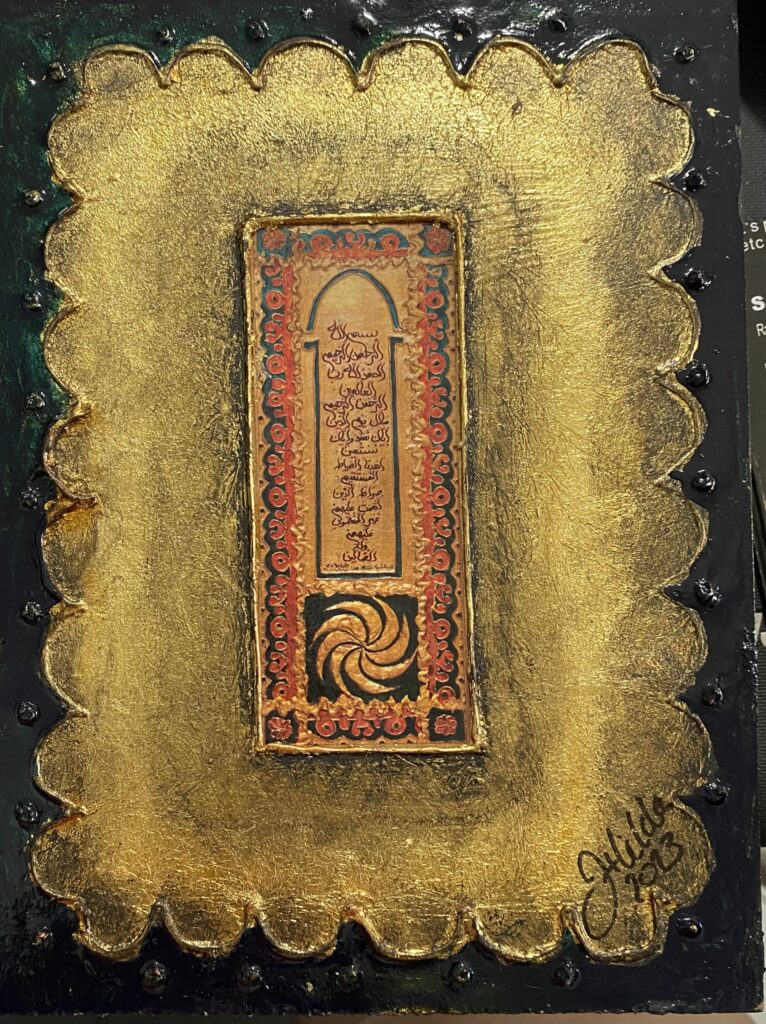 بسم الله
الرحمن الرحيم
الحمد لله ر ب
العالمين
الرحمن الرحيم
مالك يوم الدين
إياك نعبد وإياك
نستعين
اهدنا الصراط
المستقيم
صراط الذين
أنعمت عليهم
غير المغضوب
عليهم
ولا
الضالين
2023